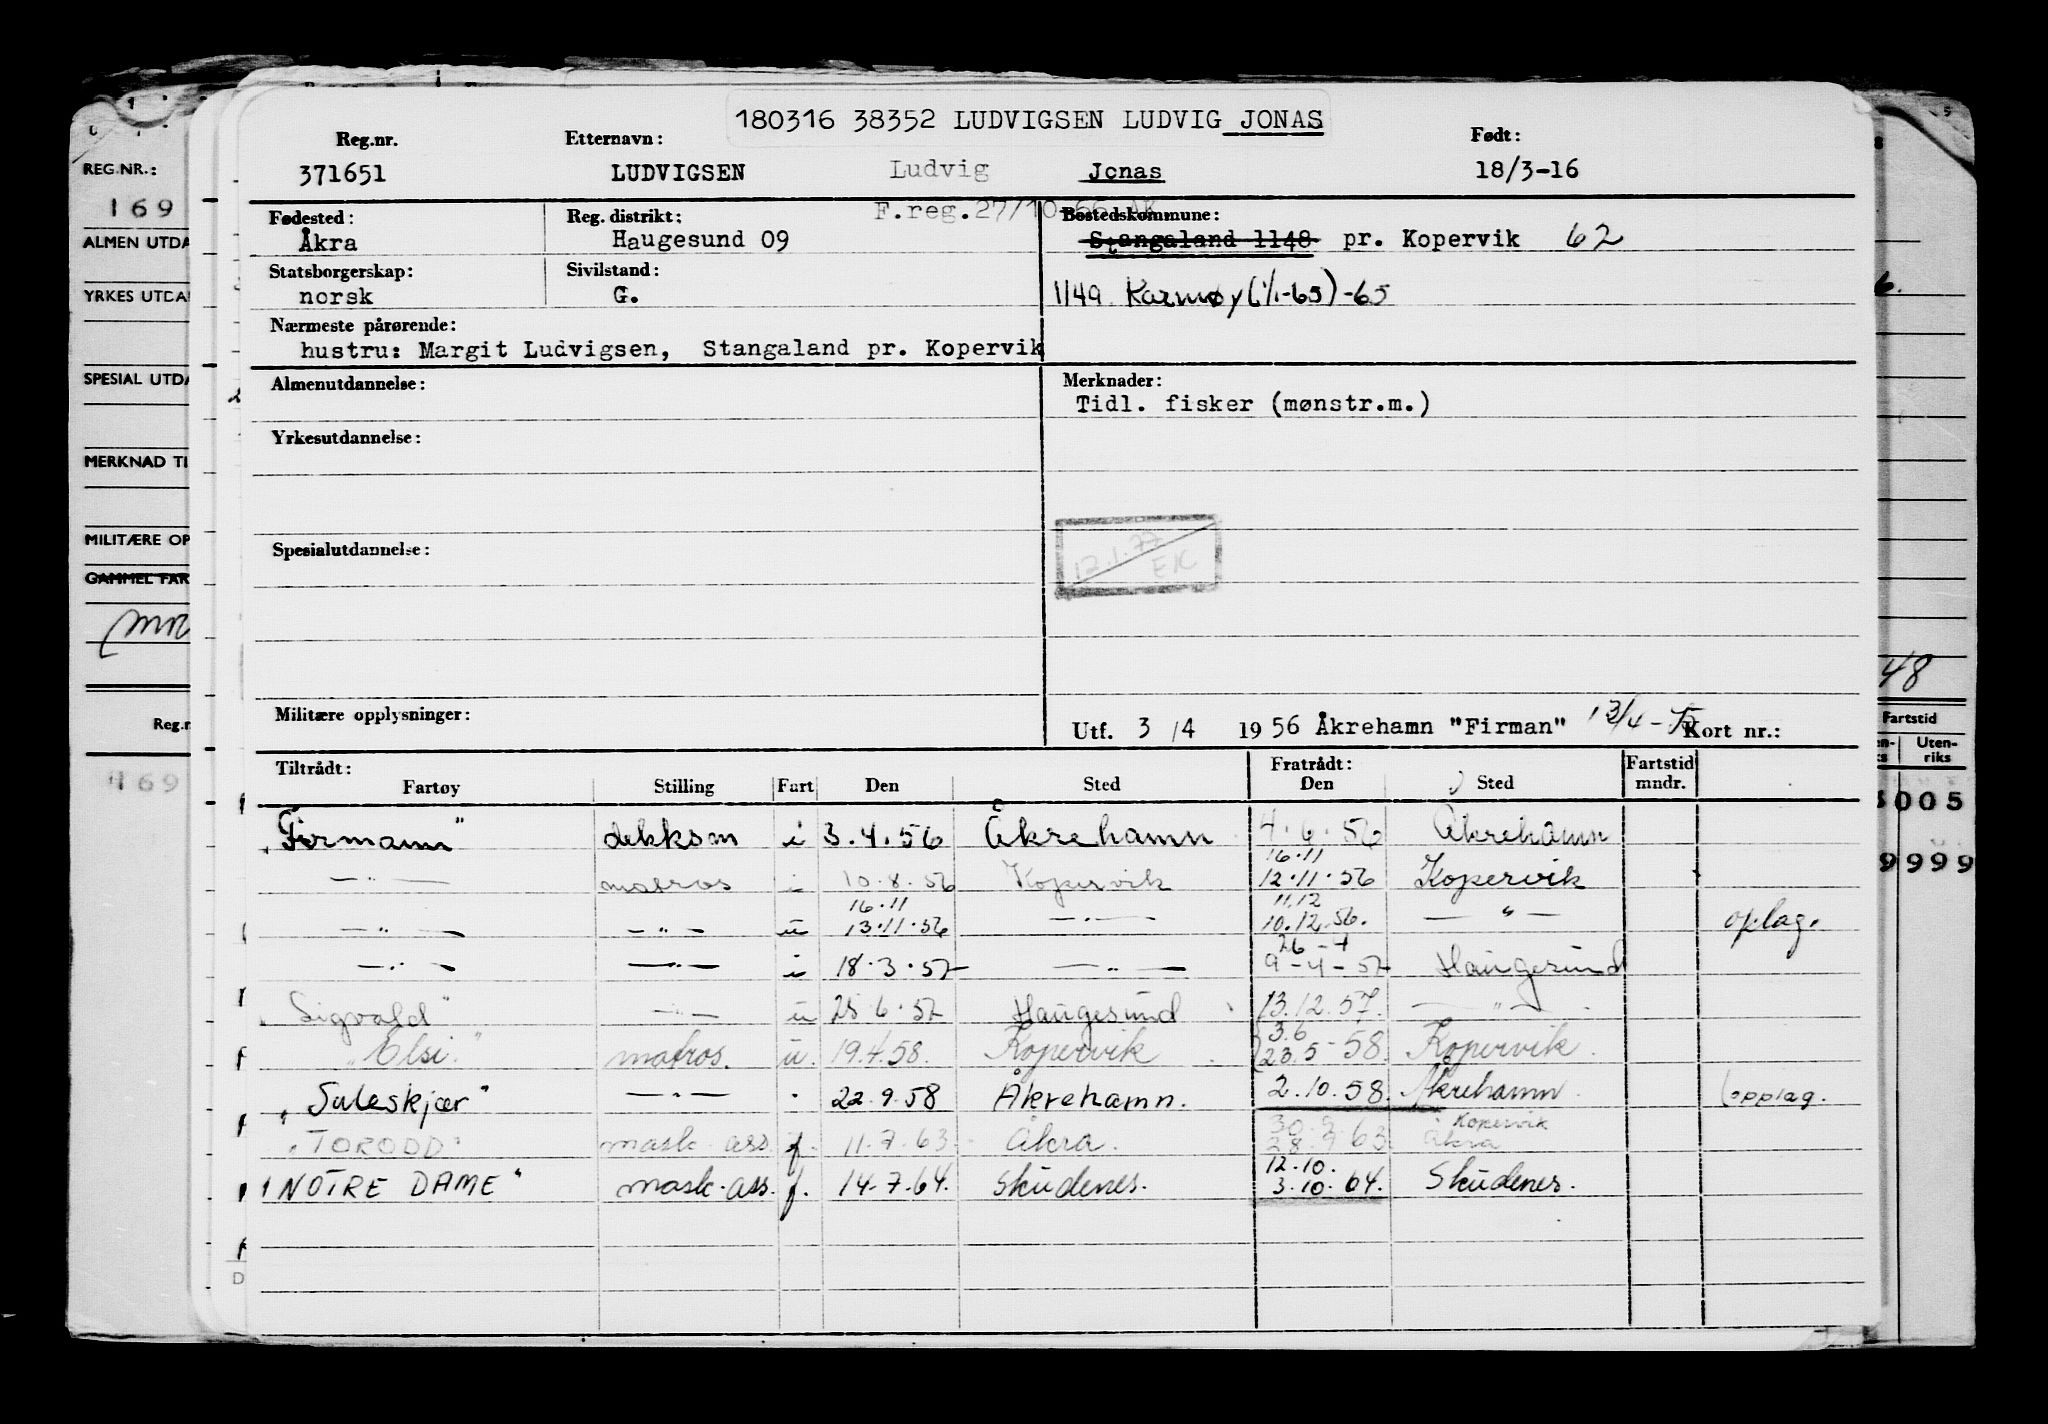 180316 38352 LUDVIGSEN LUDVIG JONAS
Reg.nr. Etternavn: Født:
371651 LUDVIGSEN Ludvig Jonas 18/3-16
F.reg.27/10-66 AK.
Fødested: Reg. distrikt: Bostedskommune:
Åkra Haugesund 09 Stangaland 1148 pr. Kopervik 62
Statsborgerskap: Sivilstand:
norsk G. 1149 Karmøy (1/1-65)-65
Nærmeste pårørende:
hustru: Margit Ludvigsen, Stangaland pr. Kopervik
Almenutdannelse: Merknader:
Tidl. fisker (mønstr.m.)
Yrkesutdannelse:
Spesialutdannelse:
12.1.77
EK
Militære opplysninger:
Utf. 3/4 1956 Åkrehamn "Firman" 13/4- Kort nr.:
Tiltrådt: Fratrådt: Fartstid
Fartøy Stilling Fart Den Sted Den Sted mndr.
"Firmann" dekksm i 3.4.56 Åkrehamn 4.6.56 Åkrehamn
16.11
—"— matros i 10.8.56 Kopervik 12.11.56 Kopervik
16.11 11.12
—"— —"— u 13.11.56 —"— 10.12.56. —"— oplag.
26-4
—"— —"— i 18.3.57 —"— 9-4-57 Haugesund
"Sigvald" —"— u 25.6.57 Haugesund 13.12.57. —"—
3.6
"Elsi." matros. u. 19.4.58. Kopervik 23.5-58. Kopervik.
"Suleskjær" —"— . 22.9.58 Åkrehamn. 2.10.58. Åkrehamn. (opplag.
30.9 Kopervik
"TORODD" mask.ass f. 11.7.63. Åkra. 28.9.63. Åkra
12.10.
"NOTRE DAME" mask.ass. f. 14.7.64. Skudenes. 3.10.64. Skudenes.
REG.NR.:
169
ALMEN UTDA
YRKES UTDA
SPESIAL UTDA
MERKNAD TI
MILITÆRE OP
GAMMEL FAR
Reg.n
169
48
Fartstid
Uten-
riks
005
9999